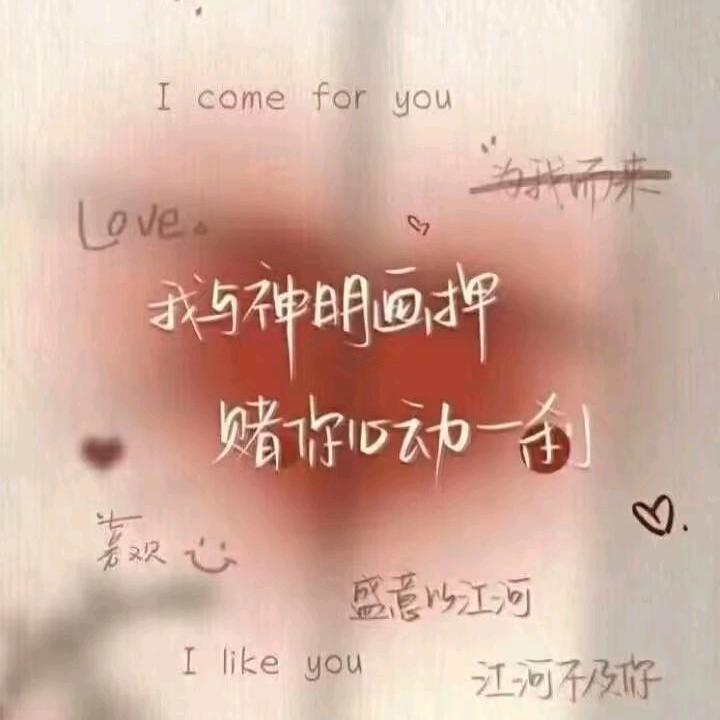 I come for you
为我而来
Love。
我与神明画押
赌你心动一刹
喜欢
盛意以江河
I like you
江河不及你